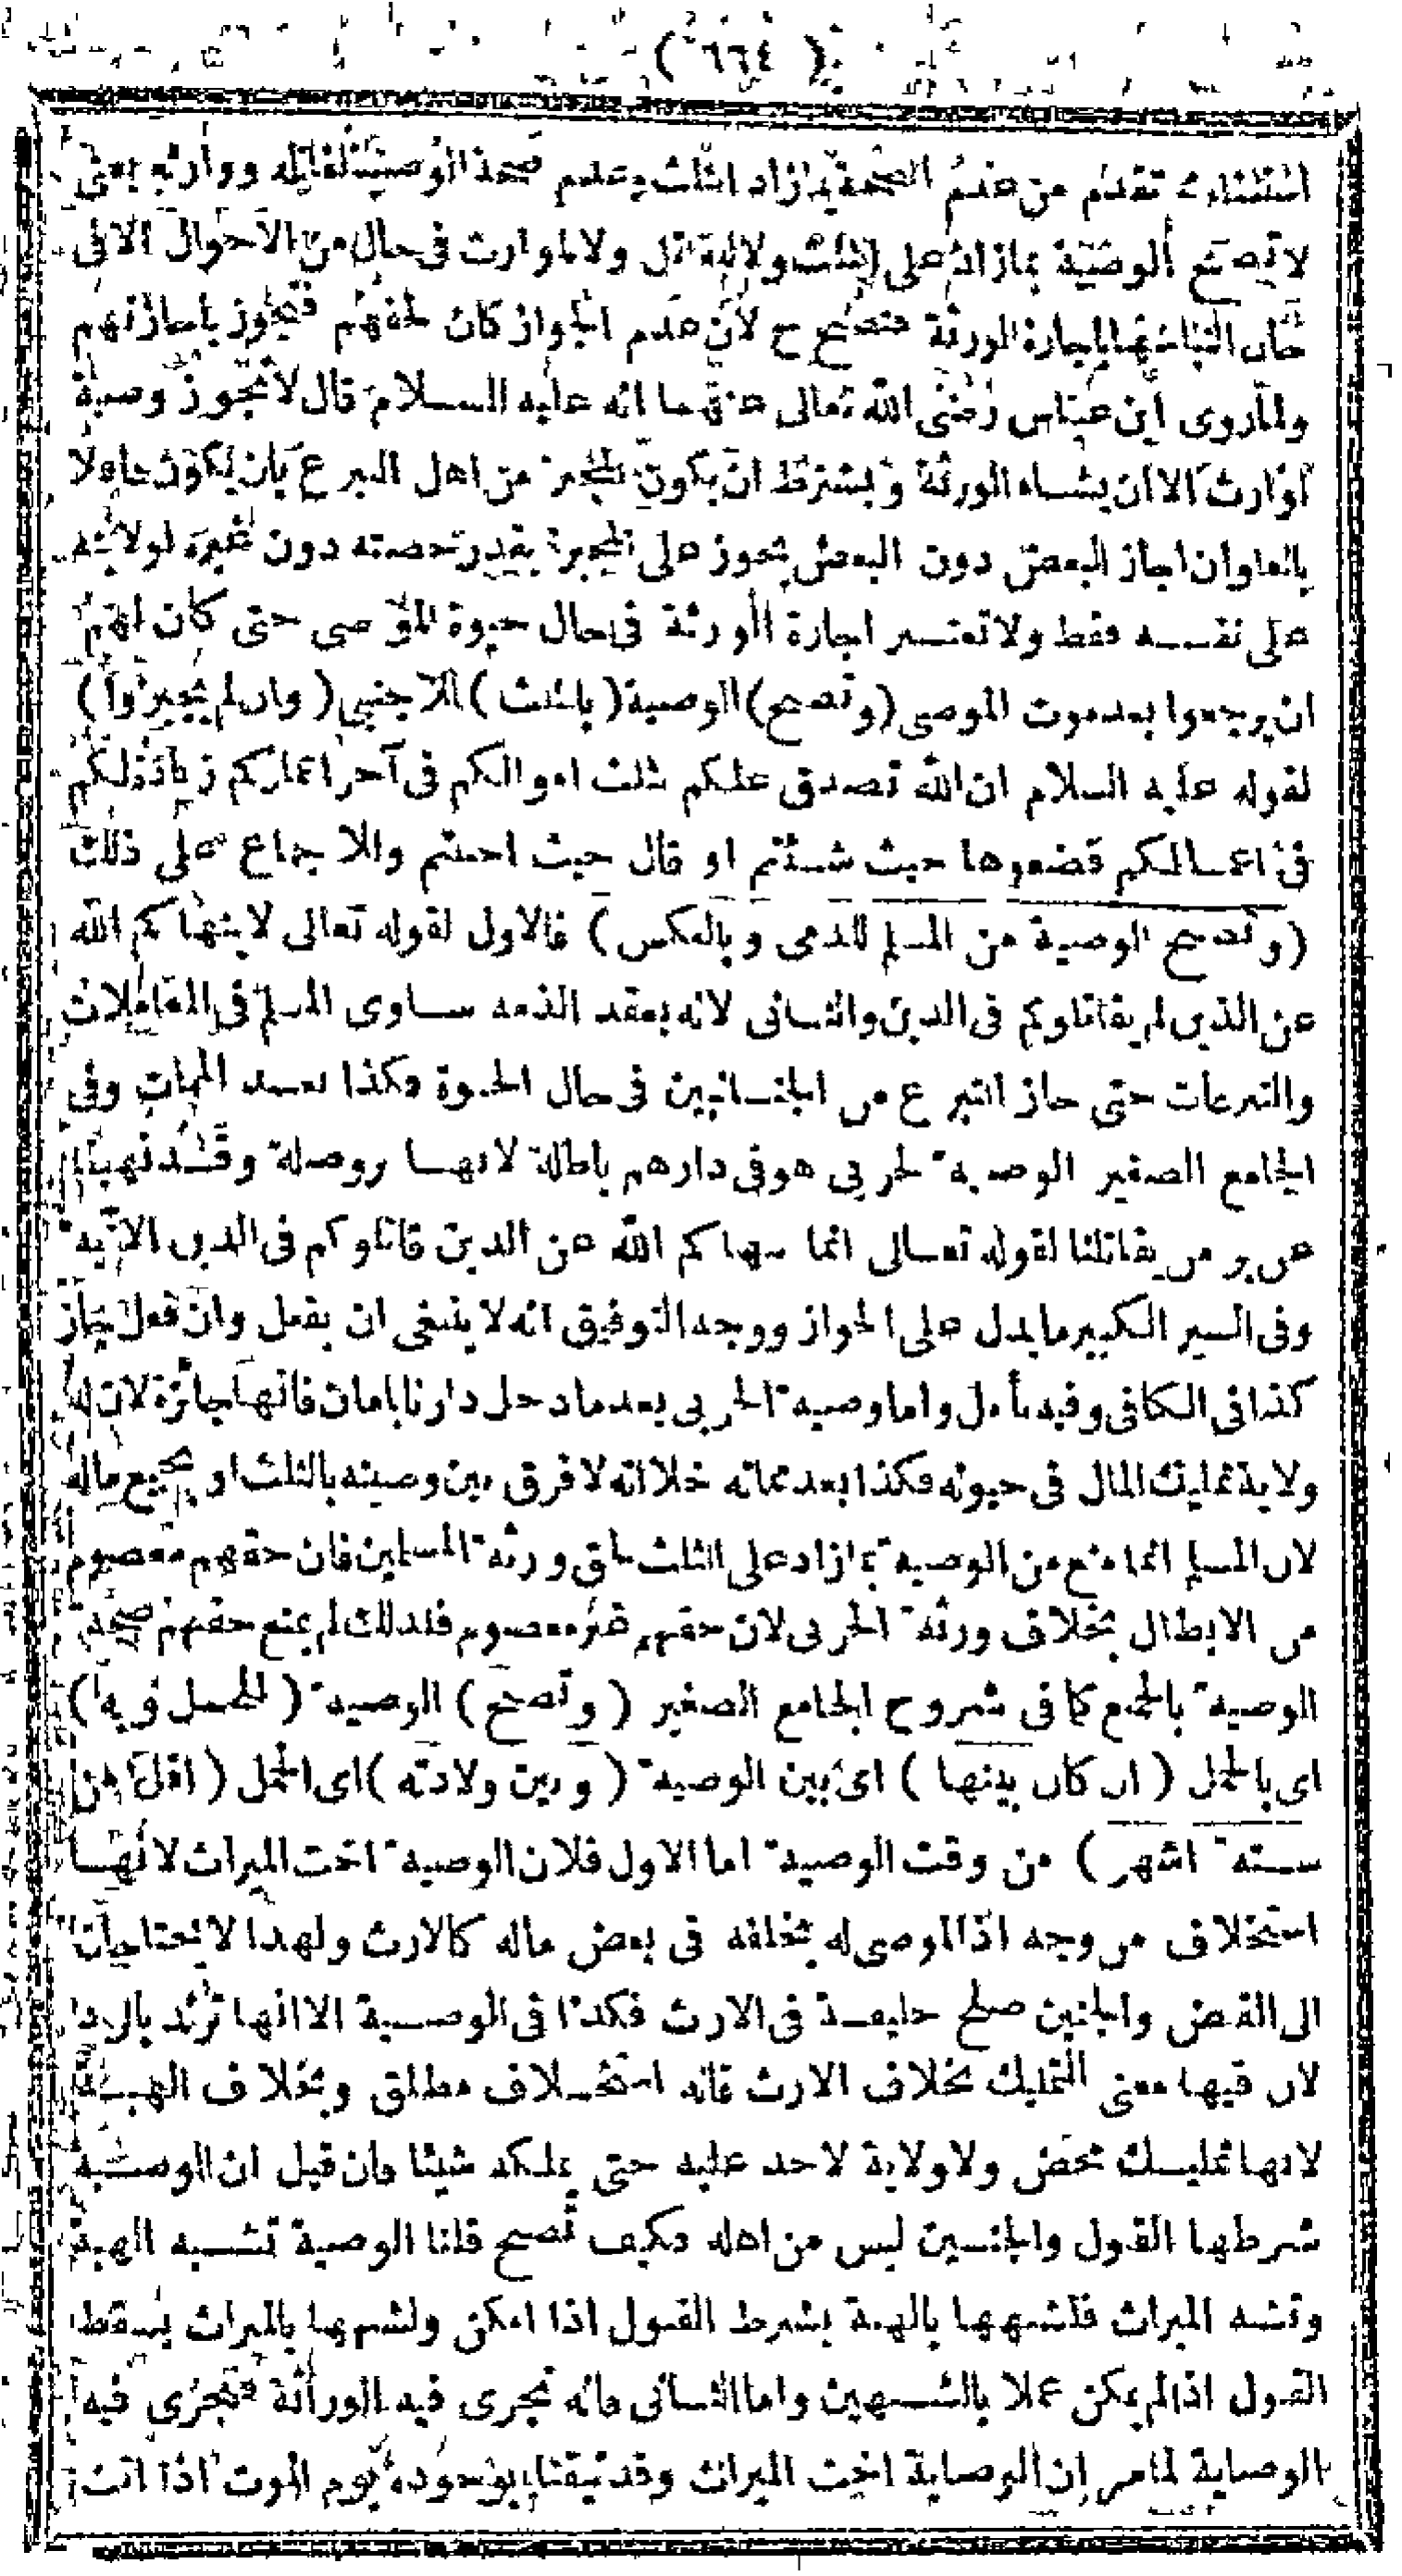 ( ٦٦٤ )
استثناء مما تقدم من عدم الصحة بما زاد الثلث وعدم صحة الوصية لقاتله ووارثه يعنى
لا تصح الوصية بما زاد على الثلث ولا للقاتل ولا لموارث فى حال من الاحوال الا فى
حال التباسها باجازة الورثة فتصح ح لان عدم الجواز كان لحقهم فيجوز باجازتهم
ولما روى ابن عباس رضى الله تعالى عنهما انه عليه السلام قال لا تجوز وصية
لوارث الا ان يشاء الورثة ويشترط ان يكون المجيز من اهل التبرع بان يكون عاقلا
بالغا وان اجاز البعض دون البعض يجوز على المجيز بقدر حصته دون غيره لولايته
على نفسه فقط ولا تعتبر اجازة الورثة فى حال حيوة الموصى حتى كان لهم
ان يرجعوا بعد موت الموصى ( وتصح ) الوصية ( بالثلث ) للاجنبى ( وان لم يجيزوا )
لقوله عليه السلام ان الله تصدق عليكم بثلث اموالكم فى آخر اعماركم زيادة لكم
فى اعمالكم فضعوها حيث شئتم او قال حيث احببتم والاجماع على ذلك
( وتصح الوصية من المسلم للذمى وبالعكس ) فالاول لقوله تعالى لا ينهاكم الله
عن الذين لم يقاتلوكم فى الدين والثانى لانه بعقد الذمه ساوى المسلم فى المعاملات
والتبرعات حتى جاز التبرع من الجانبين فى حال الحيوة فكذا بعد الممات وفى
الجامع الصغير الوصية لحربى هو فى دارهم باطلة لانها بر وصلة وقد نهينا
عن بر من يقاتلنا لقوله تعالى انما ينهاكم الله عن الذين قاتلوكم فى الدين الآية
وفى السير الكبير ما يدل على الجواز ووجه التوفيق انه لا ينبغى ان يفعل وان فعل جاز
كذا فى الكافى وفيه تأمل واما وصية الحربى بعد ما دخل دارنا بامان فانها جائزة لان له
ولاية تمليك المال فى حيوته فكذا بعد مماته خلا انه لا فرق بين وصيته بالثلث او بجميع ماله
لان المسلم انما منع من الوصية بما زاد على الثلث لحق ورثة المسلمين فان حقهم معصوم
من الابطال بخلاف ورثة الحربى لان حقهم غير معصوم فلذلك لم يمنع حقهم صحة
الوصية بالجميع كما فى شروح الجامع الصغير ( وتصح ) الوصية ( للحمل وبه )
اى بالحمل ( ان كان بينها ) اى بين الوصية ( وبين ولادته ) اى الحمل ( اقل من
ستة اشهر ) من وقت الوصية اما الاول فلان الوصية اخت الميراث لانها
استخلاف من وجه اذ الموصى له يخلفه فى بعض ماله كالارث ولهذا لا يحتاجان
الى القبض والجنين صلح خليفة فى الارث فكذا فى الوصية الا انها ترتد بالرد
لان فيها معنى التمليك بخلاف الارث فانه استخلاف مطلق وبخلاف الهبة
لانها تمليك محض ولا ولاية لاحد عليه حتى يملكه شيئا فان قيل ان الوصية
شرطها القبول والجنين ليس من اهله فكيف تصح قلنا الوصية تشبه الهبة
وتشبه الميراث فلشبهها بالهبة يشترط القبول اذا امكن ولشبهها بالميراث يسقط
القبول اذا لم يمكن عملا بالشبهين واما الثانى فانه تجرى فيه الوراثة فتجرى فيه
الوصاية لما مر ان الوصاية اخت الميراث وقد تيقنا بوجوده يوم الموت اذا اتت